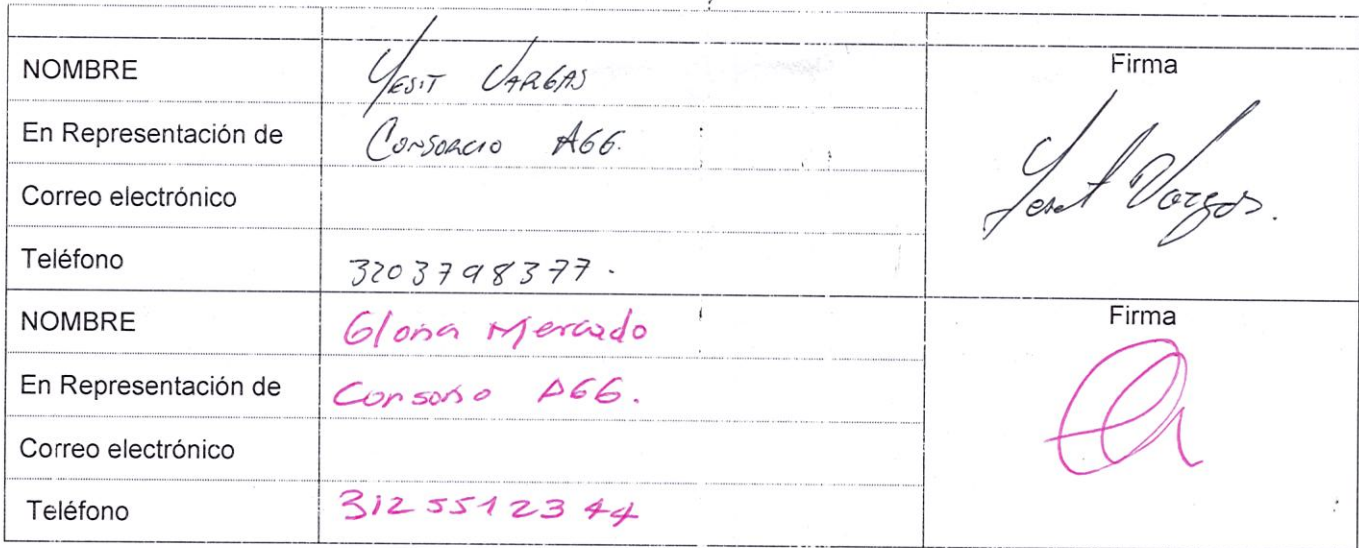 NOMBRE Yesit VARGAS Firma
En Representación de CONSORCIO AGG.
Correo electrónico
Yesit Vargas.
Teléfono 3203798377.
NOMBRE Gloria Mercado Firma
En Representación de Consorio AGG.
Correo electrónico
Teléfono 3125512344